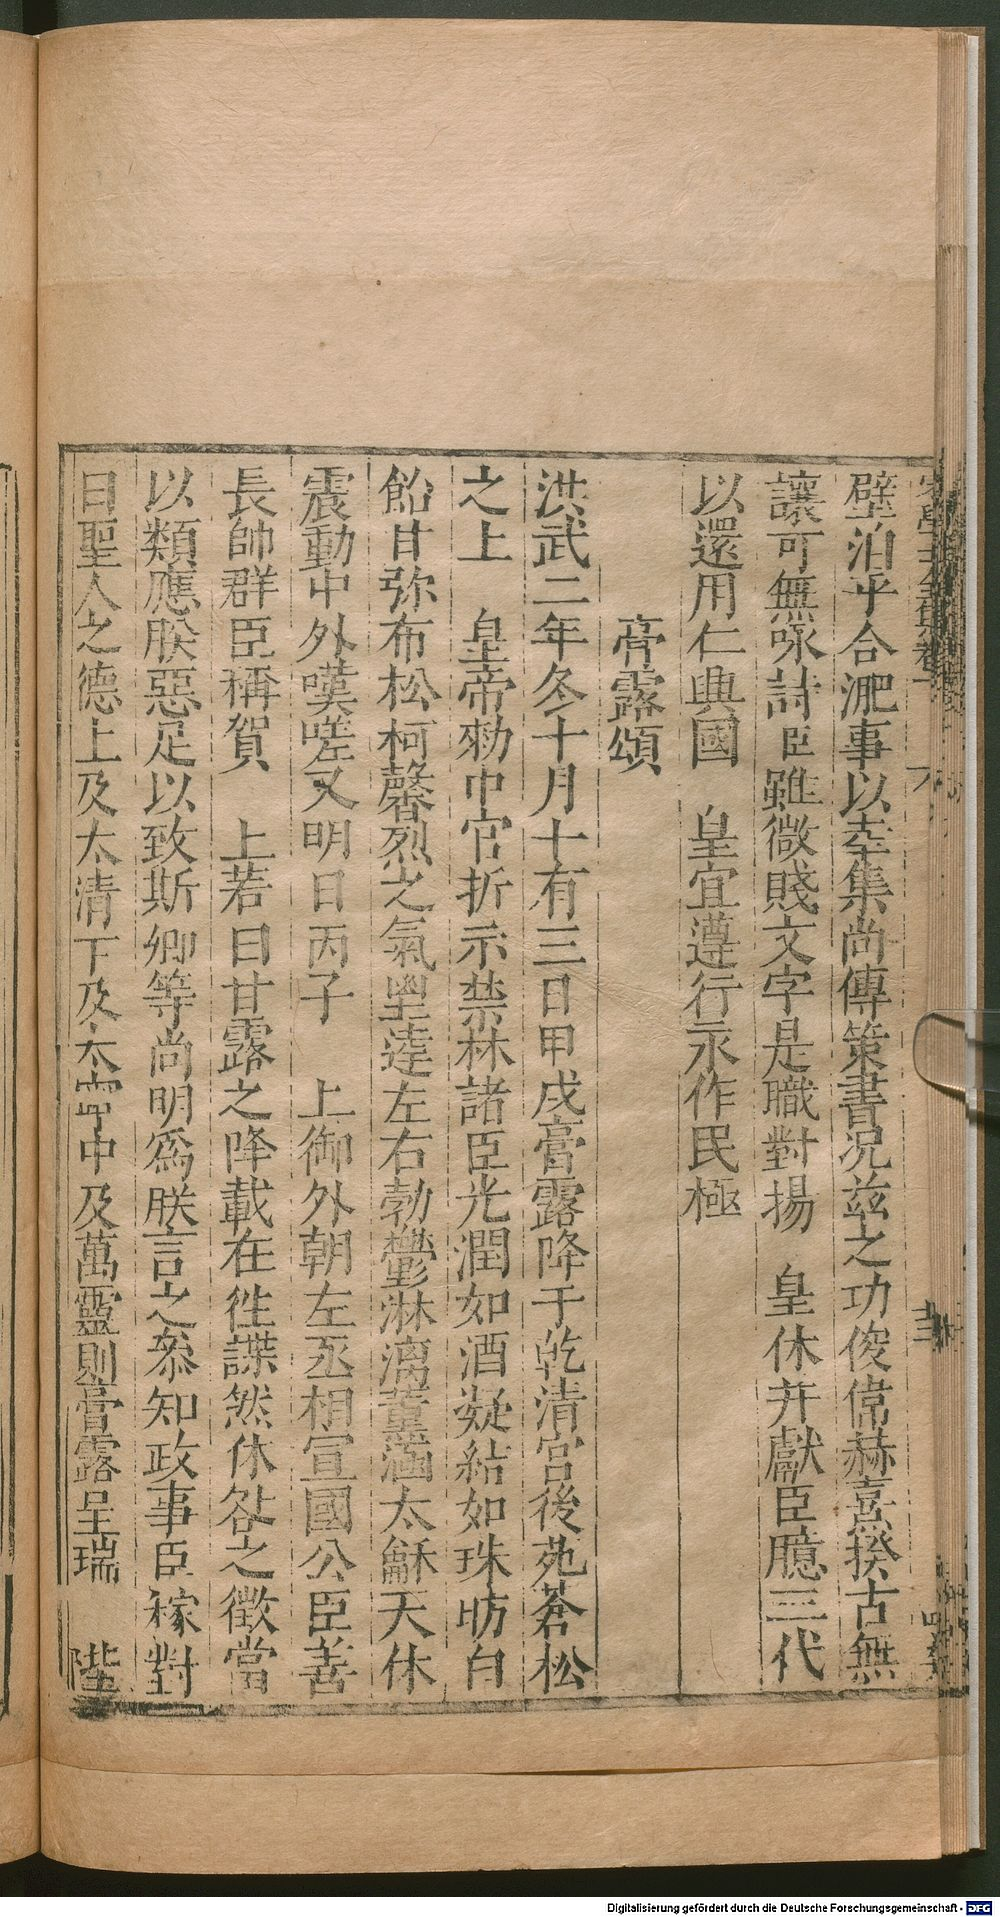 壁洎乎合淝事以幸集尚傳策書况兹之功俊偉赫熹揆古無
讓可無咏詩臣雖微賤文字是職對揚 皇休并獻臣臆三代
以還用仁興國 皇宜遵行永作民極
膏露頌
洪武二年冬十月十有三日甲戌膏露降于乾清宮後苑蒼松
之上 皇帝勑中官折示禁林諸臣光潤如酒凝結如珠昉白
飴甘弥布松柯馨烈之氣塱達左右勃鬱淋漓薰涵太龢天休
震動中外嘆嗟又明日丙子 上御外朝左丞相宣國公臣善
長帥群臣稱賀 上若曰甘露之降載在徃諜然休咎之徵當
以類應朕惡足以致斯卿等尚明爲朕言之叅知政事臣稼對
曰聖人之德上及太清下及太寧中及萬靈則膏露呈瑞 陛
Digitalisierung gefördert durch die Deutsche Forschungsgemeinschaft - DFG